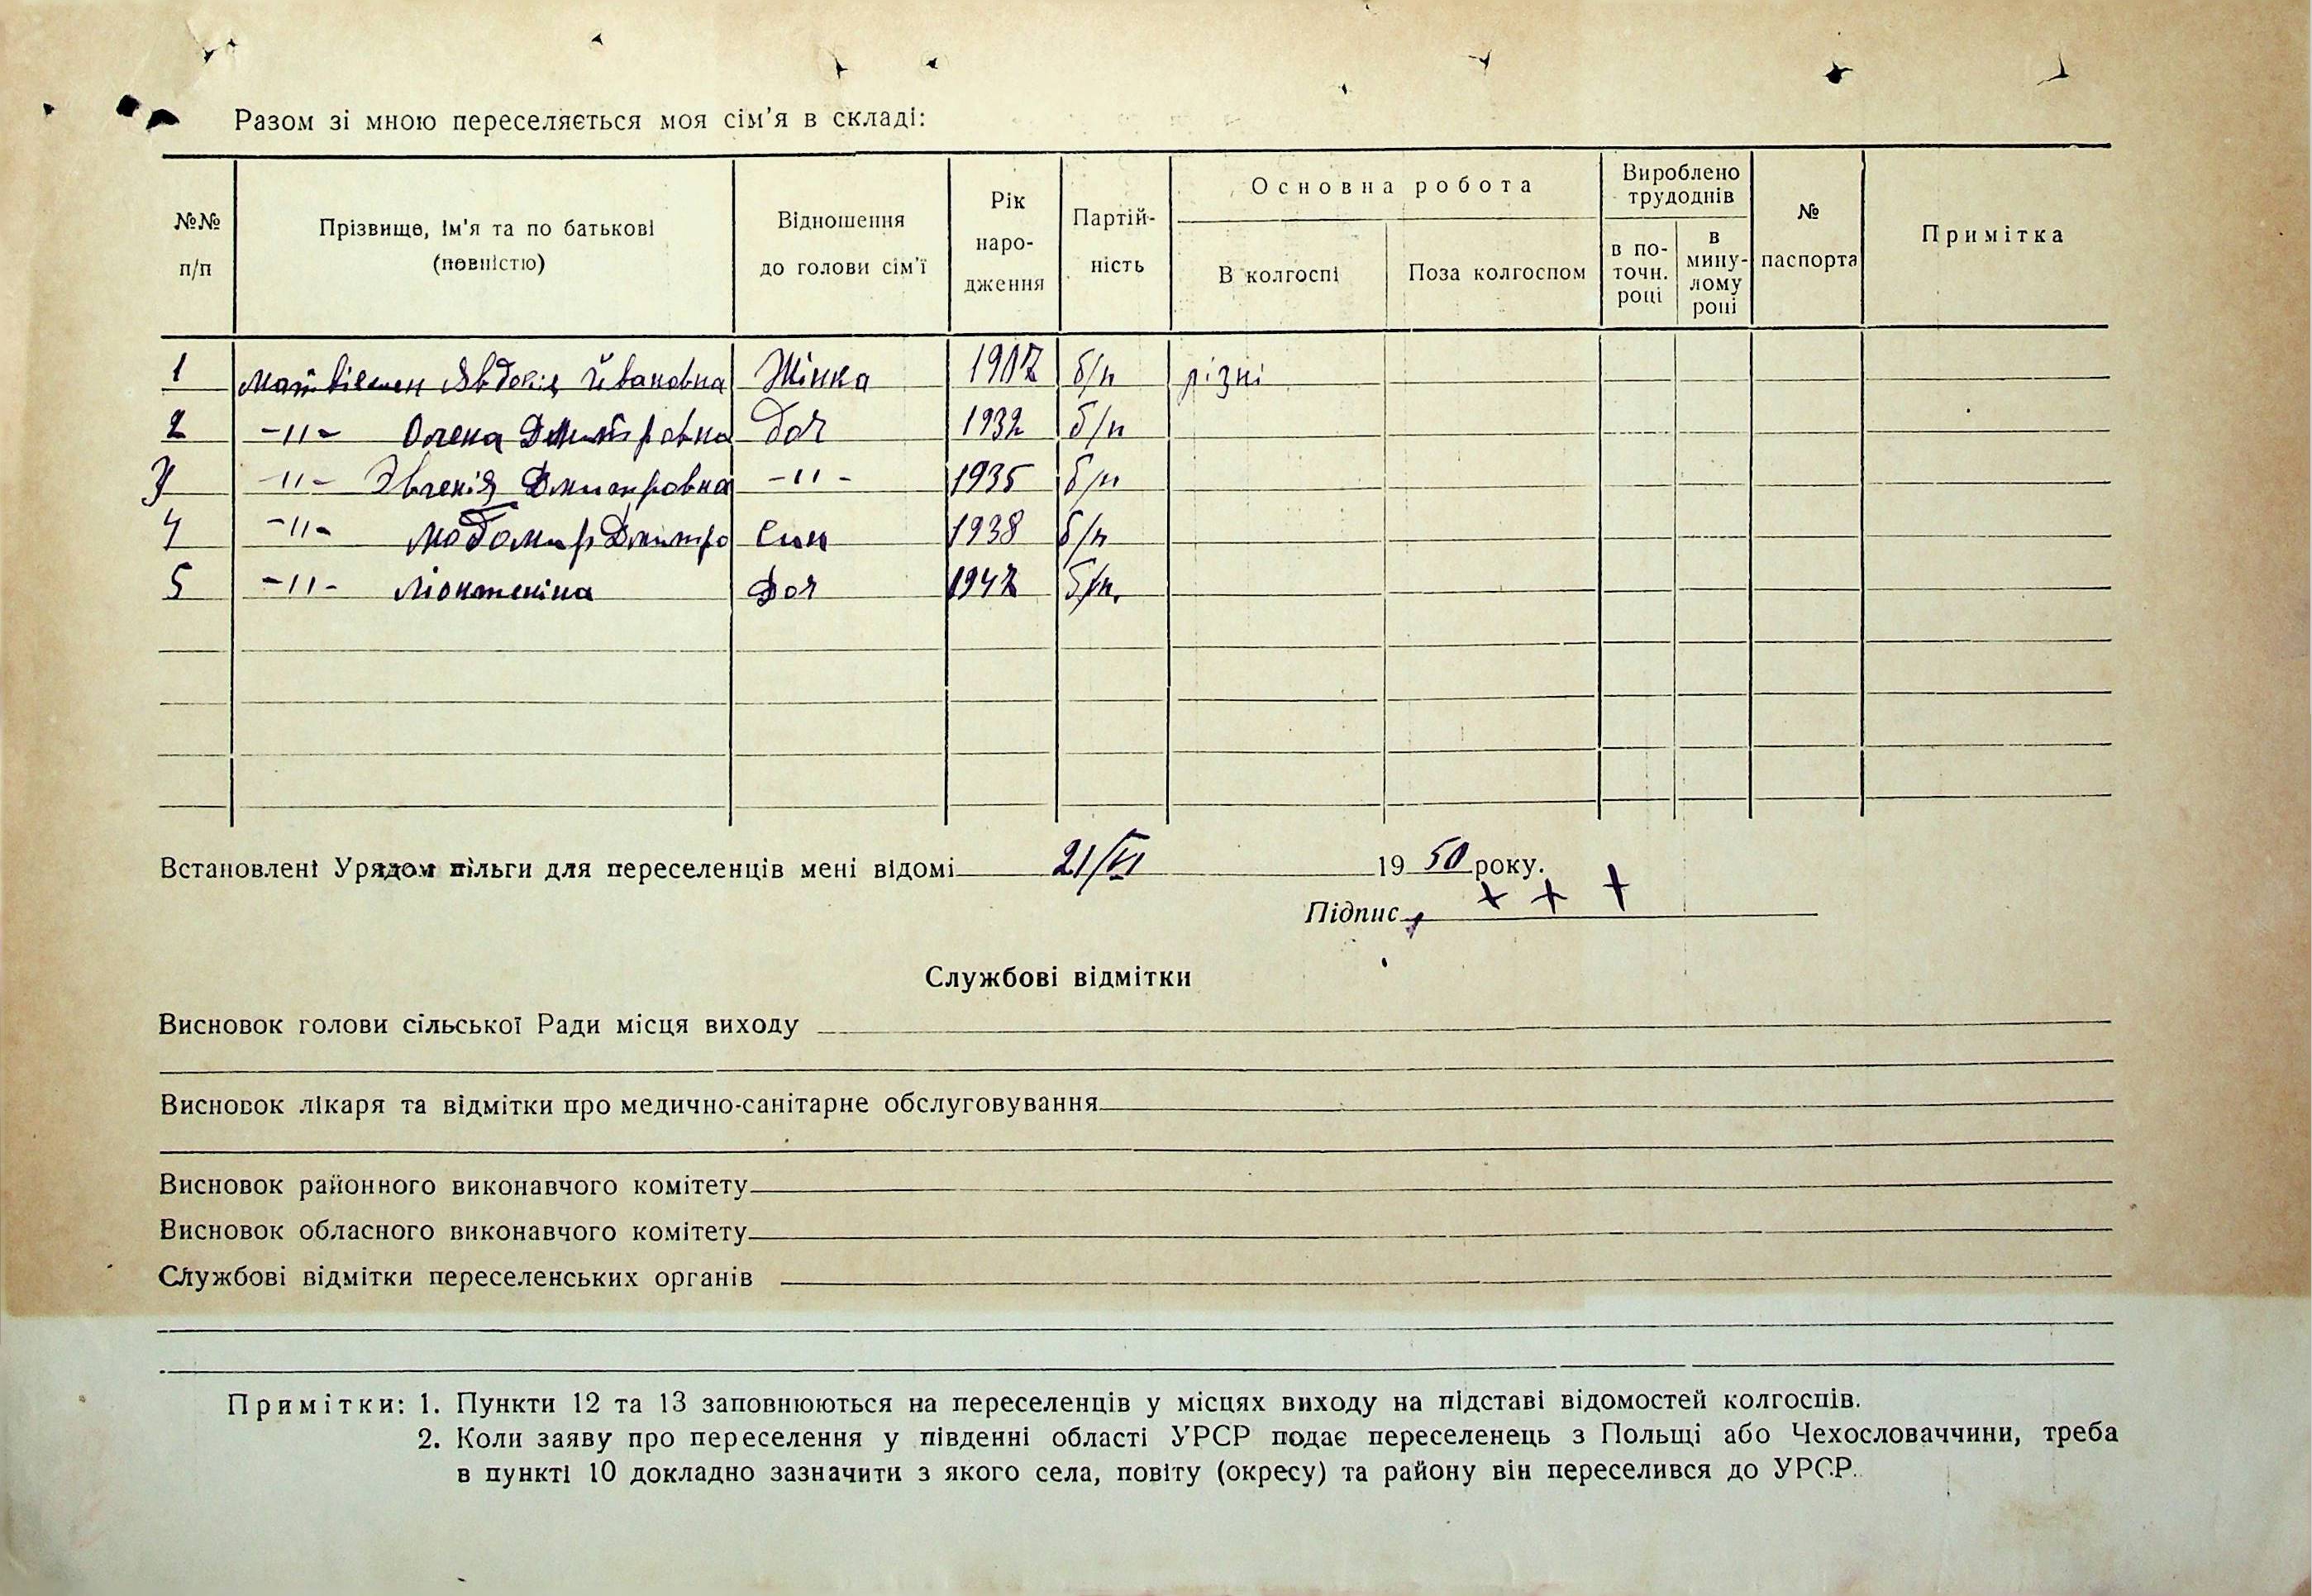 Разом зі мною переселяється моя сім'я в складі:
№№ п/п
Прізвище, ім'я та по батькові (повністю)
Відношення до голови сім'ї
Рік народження
Партійність
Основна робота
В колгоспі
Поза колгоспом
Вироблено трудоднів
в поточн. році
в минулому році
№ паспорта
Примітка
1 Явдокія Йвановна Жінка 1907 б/п різні
2 -〃- Олена Дмитровна доч 1932 б/п
3 -〃- Євгенія Дмитровна -〃- 1935 б/п
4 -〃- Дмитро Син 1938 б/п
5 -〃- Доч 1947 б/п.
Встановлені Урядом пільги для переселенців мені відомі 21/VI 1950 року.
Підпис + + +
Службові відмітки
Висновок голови сільської Ради місця виходу
Висновок лікаря та відмітки про медично-санітарне обслуговування
Висновок районного виконавчого комітету
Висновок обласного виконавчого комітету
Службові відмітки переселенських органів
Примітки: 1. Пункти 12 та 13 заповнюються на переселенців у місцях виходу на підставі відомостей колгоспів.
2. Коли заяву про переселення у південні області УРСР подає переселенець з Польщі або Чехословаччини, треба
в пункті 10 докладно зазначити з якого села, повіту (округу) та району він переселився до УРСР.